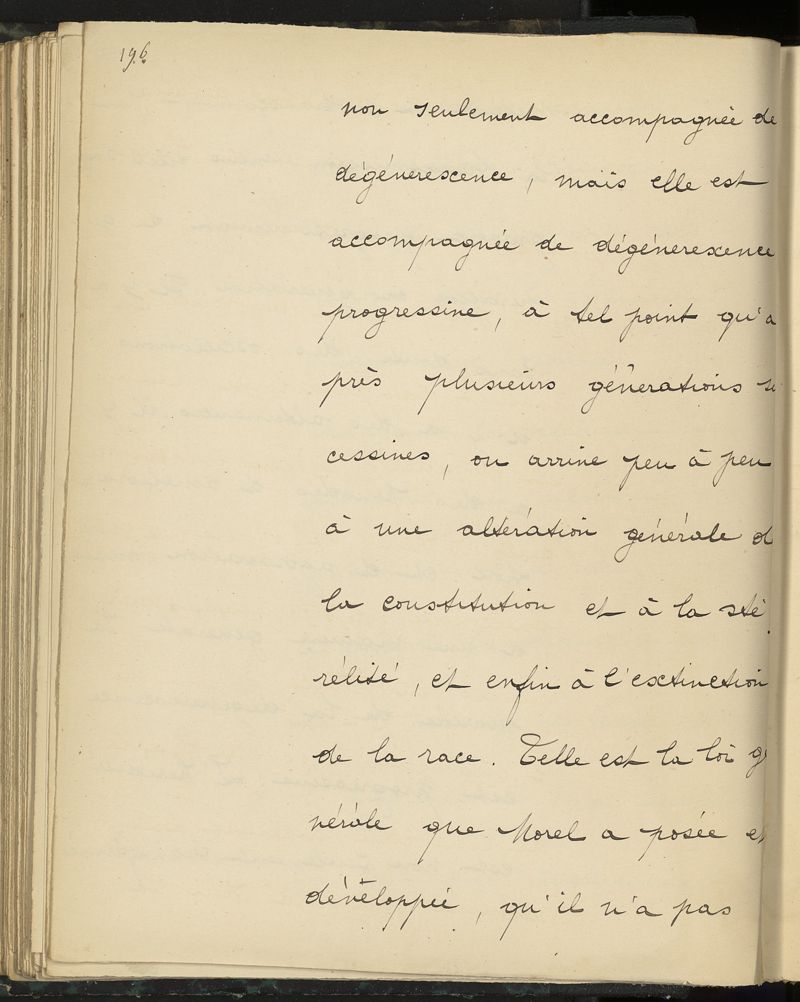 196
non seulement accompagnée de
dégénerescence, mais elle est
accompagnée de dégénerexence
progressine, à tel point qu'a
près plusieurs générations su
cessines, on arrine peu à peu
à une altération générale d
la constitution et à la sté
rélité, et enfin à l'esctinction
de la race. Telle est la loi gé
nérale que Morel a posée et
développée, qu'il n'a pas